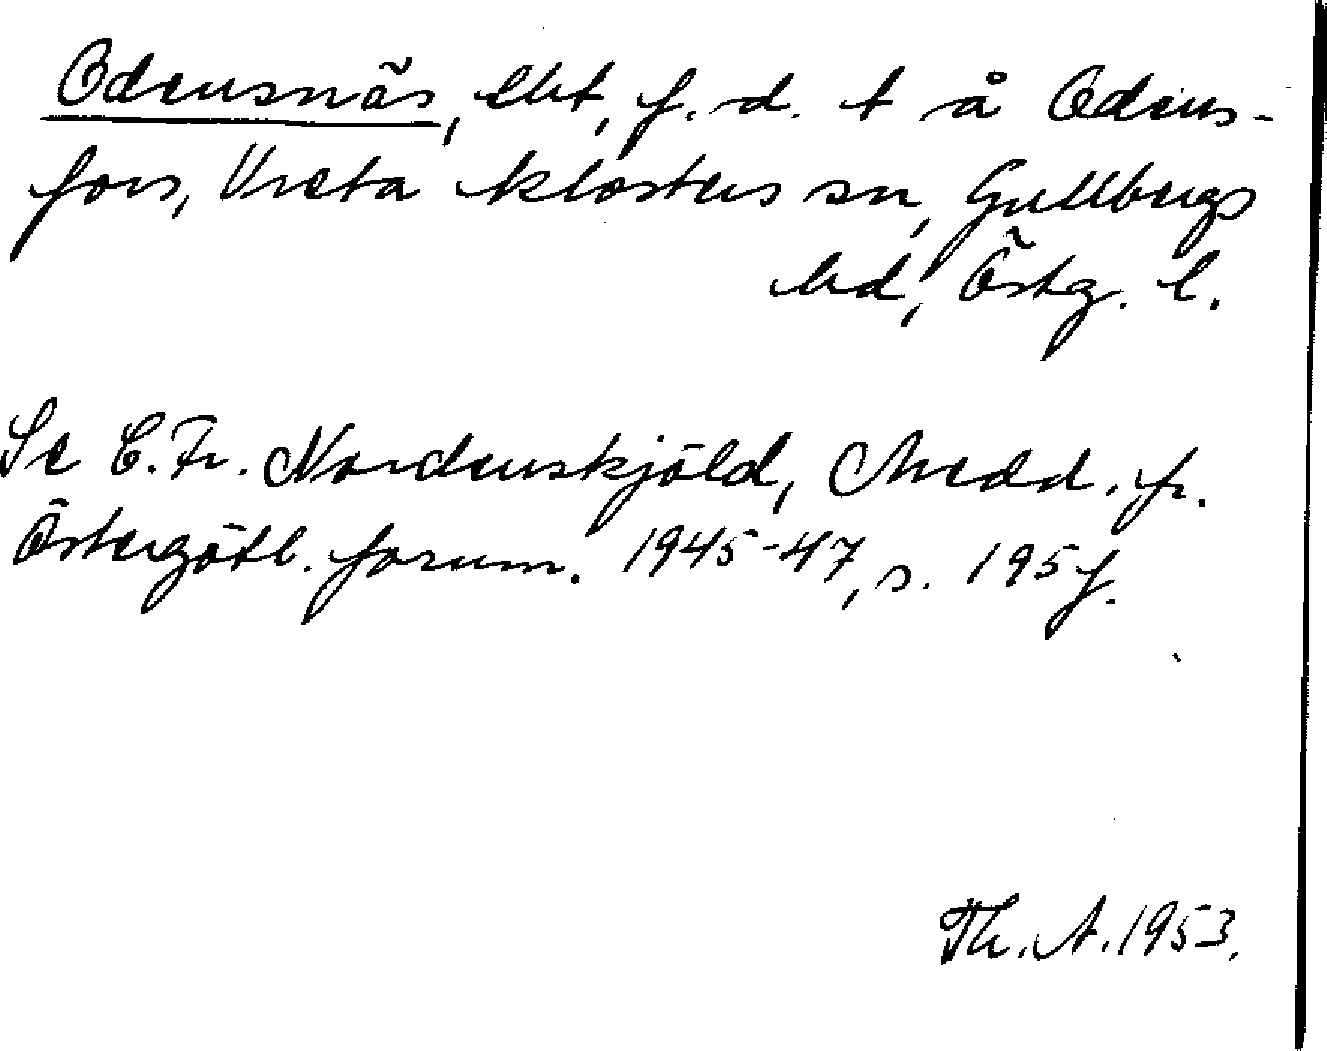 Odensnäs, lht, f. d. t å Odens-
fors, Vreta klosters sn, Gullbergs
hd, Östg. l.
Se C. Fr. Nordenskjöld, Medd. fr.
Östergötl. fornm. 1945-47, s. 195 f.
Th. A. 1953.